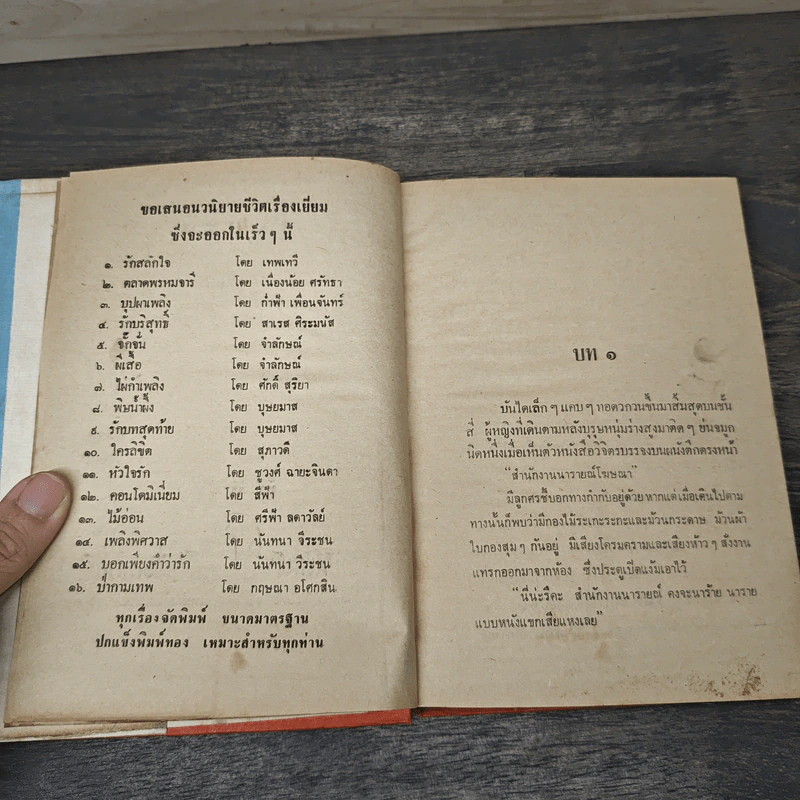 ขอเสนอนวนิยายชีวิตเรื่องเยี่ยม
ซึ่งจะออกในเร็ว ๆ นี้
๑. รักสลักใจ โดย เทพเทวี
๒. ตลาดพรหมจารี โดย เนื่องน้อย ศรัทธา
๓. บุปผาเพลิง โดย ก่ำฟ้า เพื่อนจันทร์
๔. รักบริสุทธิ์ โดย สาเรส ศิระมนัส
๕. จั๊กจั่น โดย จำลักษณ์
๖. ผีเสื้อ โดย จำลักษณ์
๗. ไผ่กำเพลิง โดย ศักดิ์ สุริยา
๘. พิษน้ำผึ้ง โดย บุษยมาส
๙. รักบทสุดท้าย โดย บุษยมาส
๑๐. ใครลิขิต โดย สุภาวดี
๑๑. หัวใจรัก โดย ชูวงศ์ ฉายะจินดา
๑๒. คอนโดมิเนี่ยม โดย สีฟ้า
๑๓. ไม้อ่อน โดย ศรีฟ้า ลดาวัลย์
๑๔. เพลิงพิศวาส โดย นันทนา วีระชน
๑๕. บอกเพียงคำว่ารัก โดย นันทนา วีระชน
๑๖. ป่ากามเทพ โดย กฤษณา อโศกสิน
ทุกเรื่องจัดพิมพ์ ขนาดมาตรฐาน
ปกแข็งพิมพ์ทอง เหมาะสำหรับทุกท่าน
บท ๑
บันไดเล็ก ๆ แคบ ๆ ทอดวกวนขึ้นมาสิ้นสุดบนชั้น
สี่ ผู้หญิงที่เดินตามหลังบุรุษหนุ่มร่างสูงมาติด ๆ ย่นจมูก
นิดหนึ่งเมื่อเห็นตัวหนังสือวิจิตรบรรจงบนผนังตึกตรงหน้า
“สำนักงานนารายณ์โฆษณา”
มีลูกศรชี้บอกทางกำกับอยู่ด้วย หากแต่เมื่อเดินไปตาม
ทางนั้นก็พบว่ามีกองไม้ระเกะระกะและม้วนกระดาษ ม้วนผ้า
ใบกองสุม ๆ กันอยู่ มีเสียงโครมครามและเสียงห้าว ๆ สั่งงาน
แทรกออกมาจากห้อง ซึ่งประตูเปิดแง้มเอาไว้
“นี่น่ะรึคะ สำนักงานนารายณ์ คงจะนาร้าย นาราย
แบบหนังแขกเสียแหงเลย”